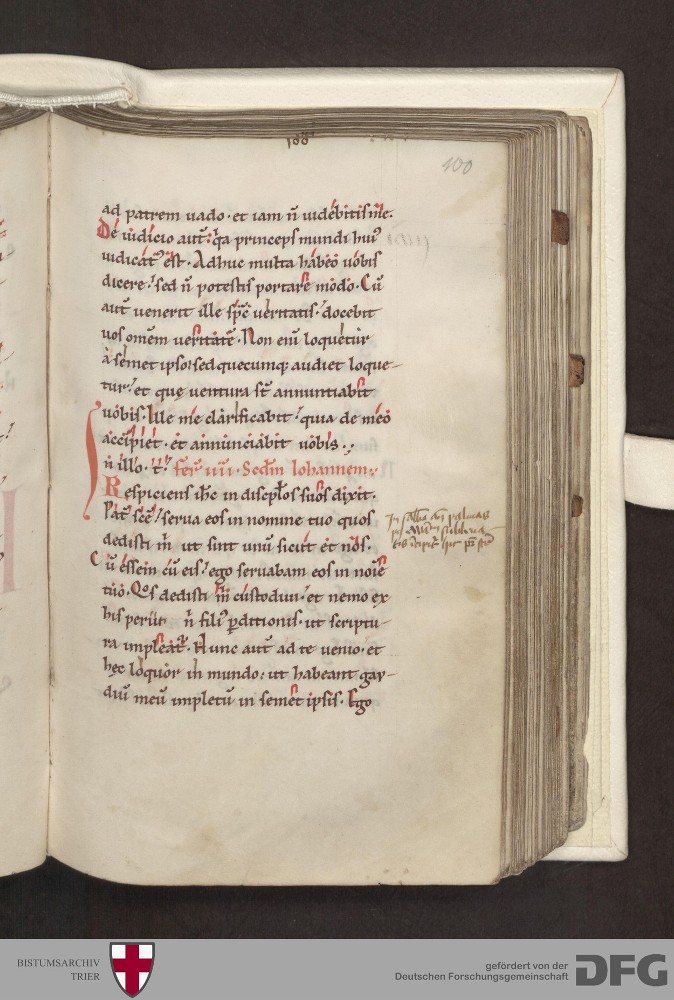 100
ad patrem uado· et iam n̄ uidebitis me.
De iudicio aut̄· q̇a princeps mundi hui᷒
iudicat᷒ est· Adhuc multa habeo uobis
dicere· sed n̄ potestis portare modo· Cū
aut̄ uenerit ille sp̄c ueritatis· docebit
uos omem ueritatē· Non eni loquetur
a semet ipso· sed quecumq; audiet loque-
tur· et quę uentura st̄ annuntiabit
uobis· Ille me clarificabit· quia de meo
accipiet· et annunciabit uobis·;
n illo· t̄· fer̄ iiii· Secdm Iohannem·
Respiciens ihc in discip̄los suos dixit·
Pat̄ sc̄e· serua eos in nomine tuo quos
dedisti m̄· ut sint unū sicut et nos·
Cū essem cū eis· ego seruabam eos in noīe
tuo· Qos dedisti m̄ custodiui· et nemo ex
his periit n̄ fili᷒ ꝑditionis· ut scriptu-
ra impleat᷒· Nunc aut̄ ad te uenio· et
hęc loquor in mundo· ut habeant gau-
diū meū impletū in semet ipsis· Ego
BISTUMSARCHIV
TRIER
gefördert von der
Deutschen Forschungsgemeinschaft
DFG